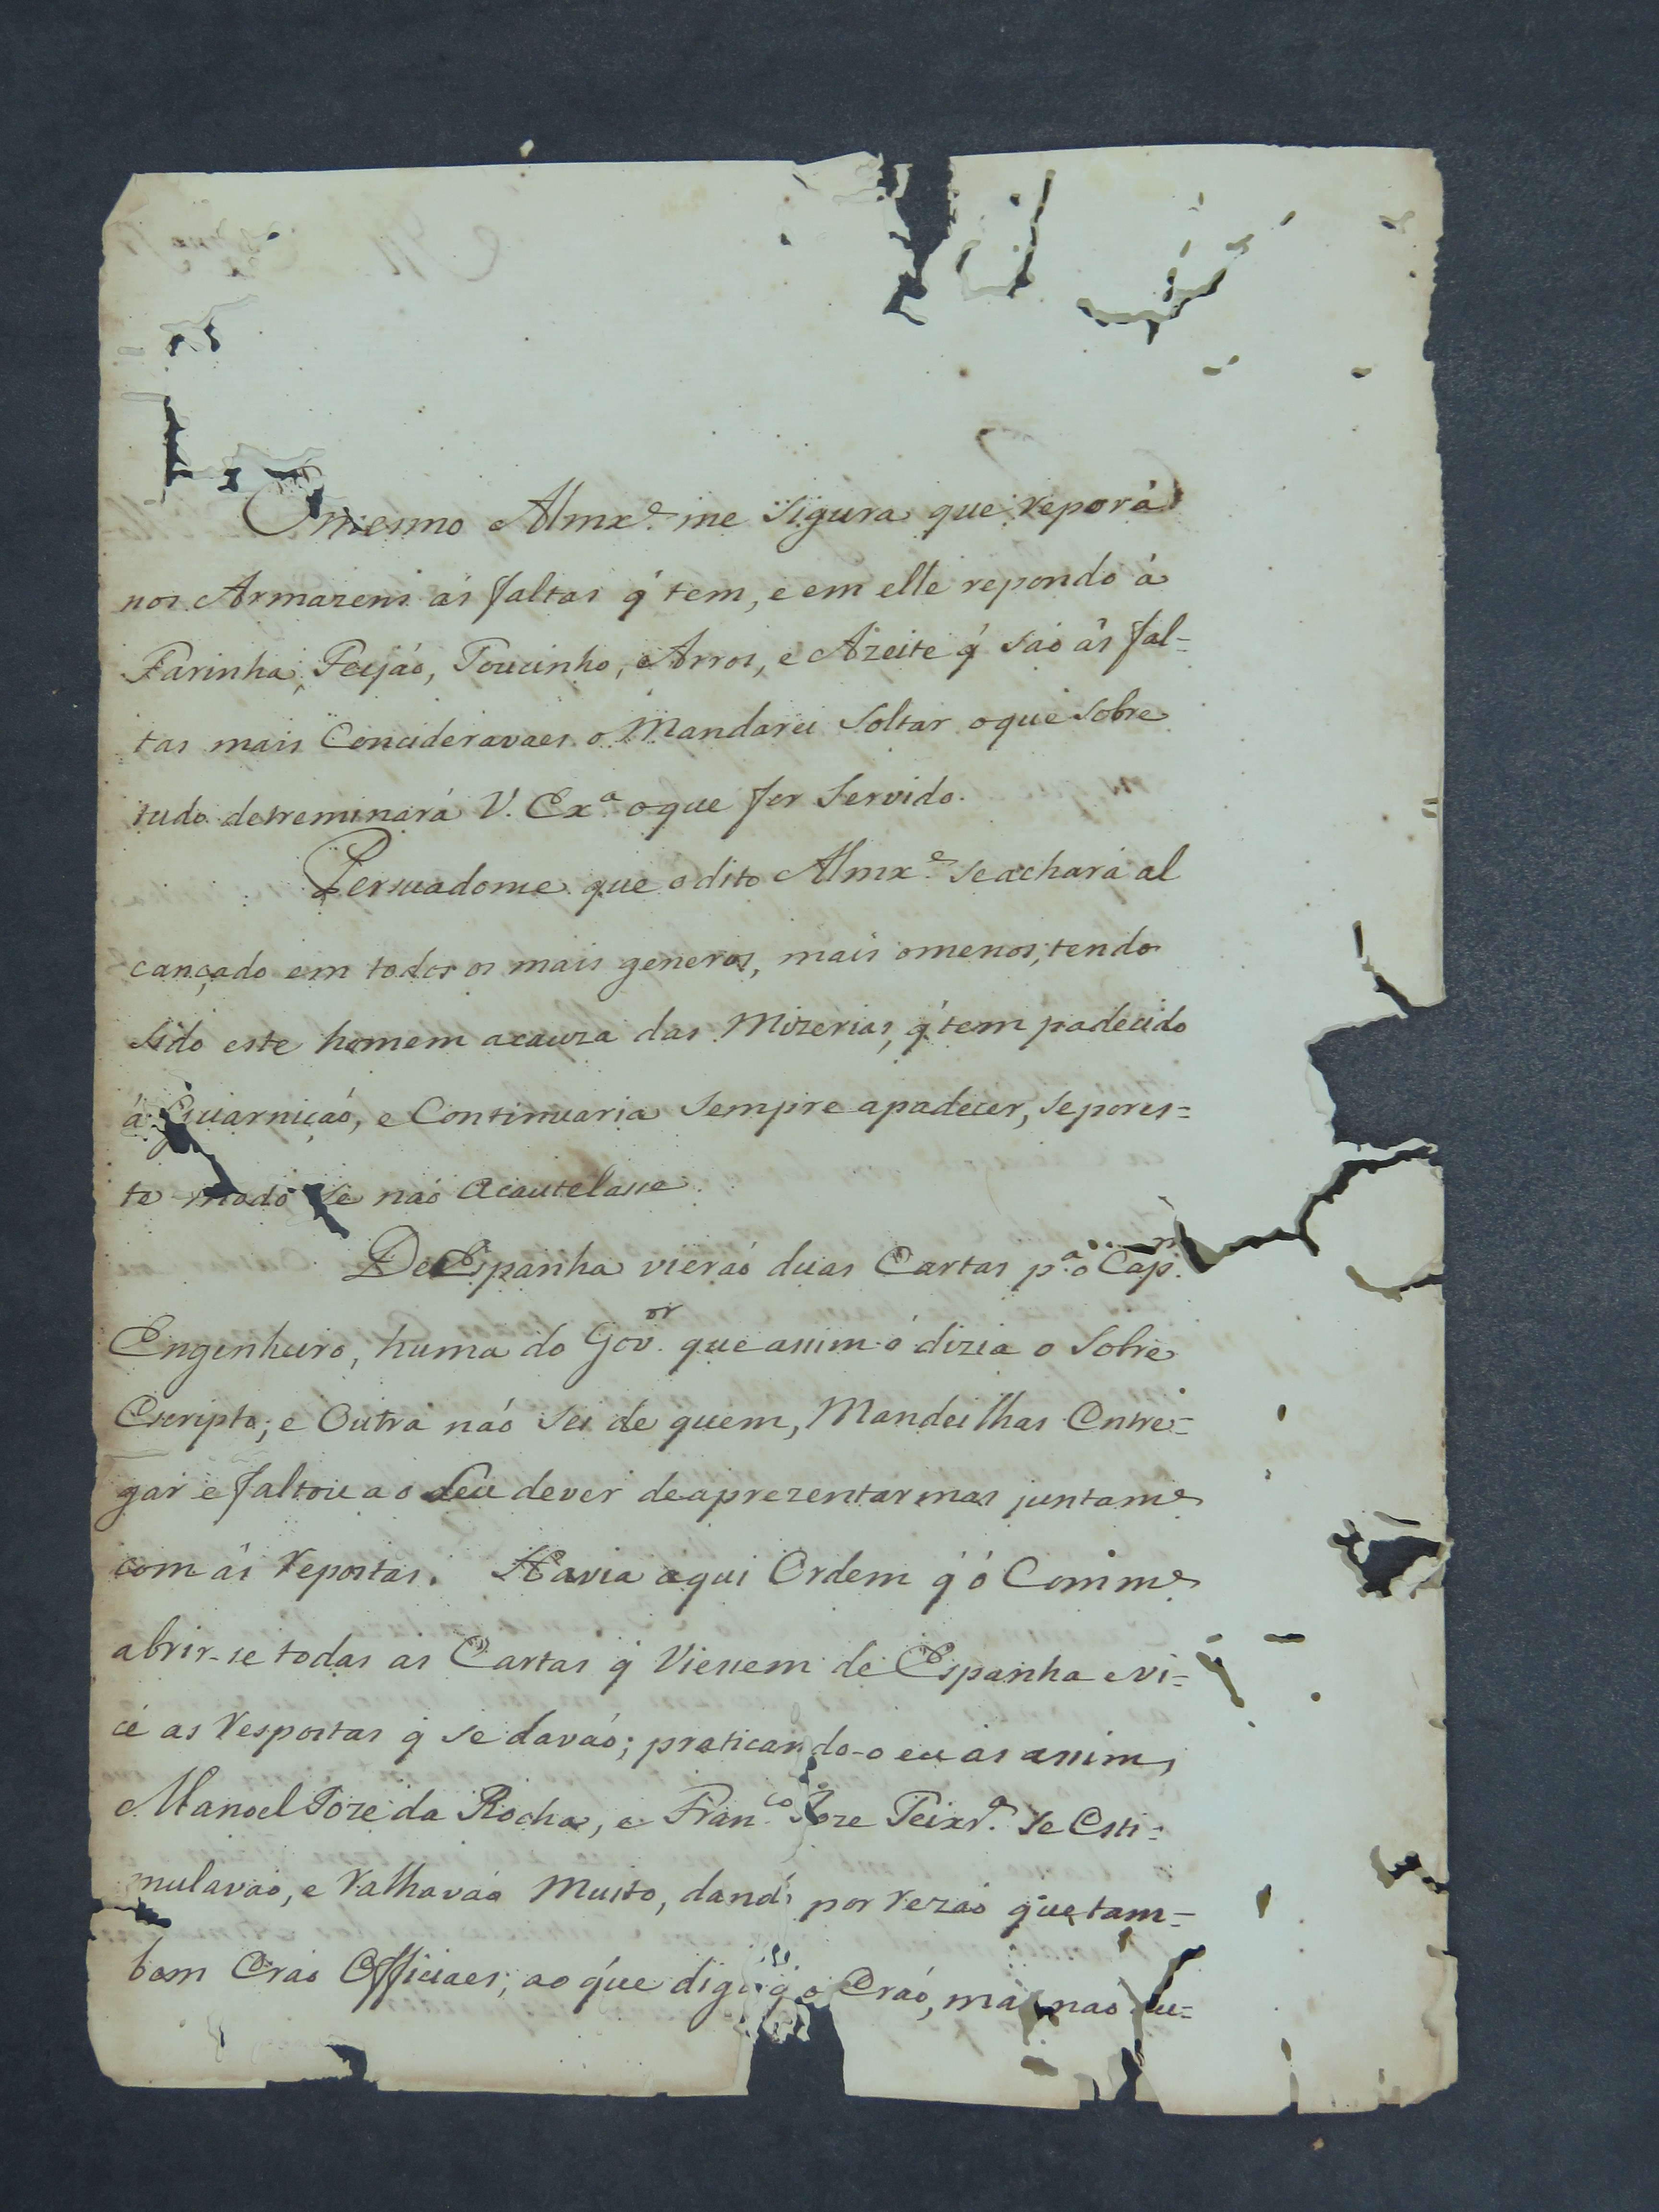 O mesmo Almx.e me sigura que reporá
nos Armazens ás faltas q́ tem, e em elle repondo á
Farinha, Feijáo, Toucinho, Arros, e Azeite q́ saó ás fal=
tas mais Concideravaes o Mandarei Soltar o que Sobre
tudo detreminará V. Ex.a o que for Servido.
Persuadome que o dito Almx.e se achará al
cançado em todos os mais generos, mais omenos, tendo
sido este homem a cauza das Mizerias, q́ tem padecido
á Guarniçaó, e Continuaria Sempre a padecer, se por es=
te modo se naó Acautelasse.
De Espanha vieraó duas Cartas p.a o Cap.m
Engenheiro, huma do Gov.or que assim ó dizia o Sobre
Escripto; e Outra naó sei de quem, Mandei lhas Entre=
gar e faltou ao Seu dever de aprezentarmas juntam.e
com ás repostas. Havia aqui Ordem q́ ó Comm.e
abrir-se todas as Cartas q́ Viessem de Espanha e vi=
ce as respostas q́ se davaó; praticando-o eu as assim,
Manoel Joze da Rocha, e Fran.co Joze Teixr.a se Esti=
mulavaó, e ralhavaó Muito, dand por rezaó que tam=
bem Eraó Officiaes; ao que digo q́ o Eraó, mas naó